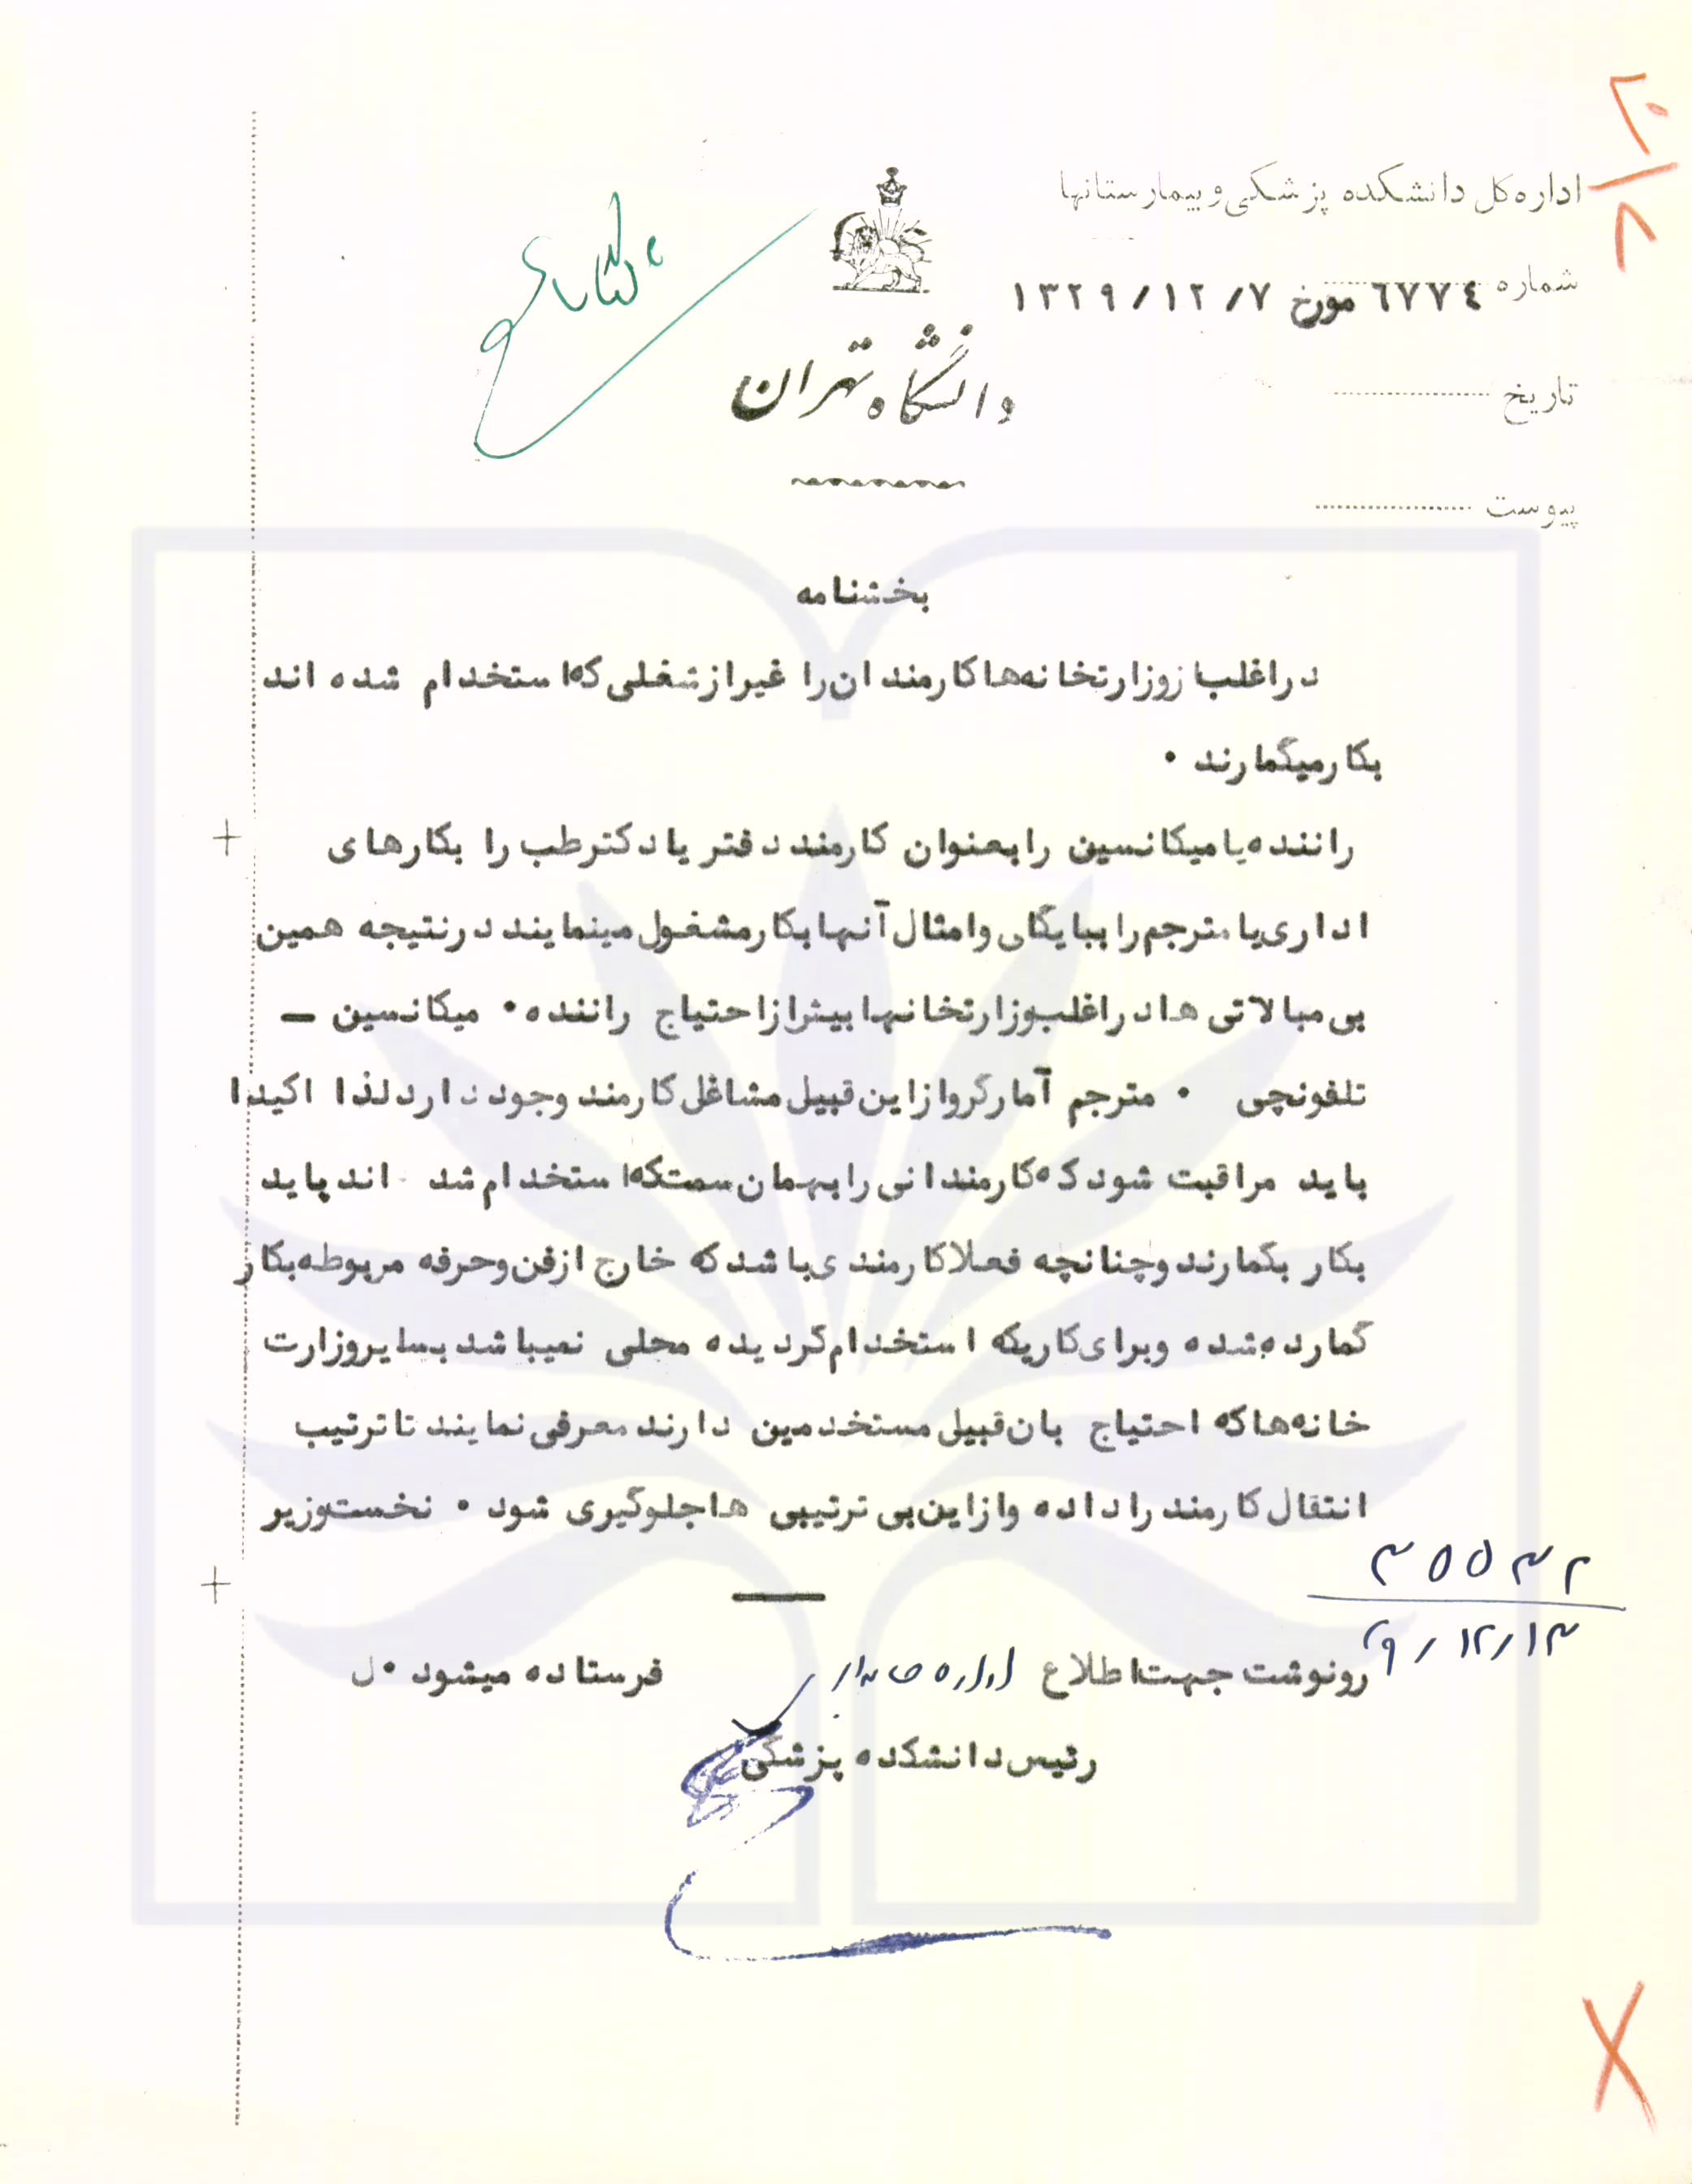 ۲۰
۸
اداره کل دانشکده پزشکی و بیمارستانها
شماره ٦٧٧٤ مورخ ١٣٢٩/١٢/٧
دانشگاه تهران
تاریخ
پیوست
بخشنامه
در اغلب از وزارتخانه ها کارمندان را غیر از شغلی که استخدام شده اند
بکار میگمارند ٠
راننده یا میکانسین را بعنوان کارمند دفتر یا دکتر طب را بکارهای
اداری یا مترجم را ببایگانی و امثال آنها بکار مشغول مینمایند در نتیجه همین
بی مبالاتی ها در اغلب وزارتخانها بیش از احتیاج راننده ٠ میکانسین ــ
تلفونچی ٠ مترجم آمارگر و از این قبیل مشاغل کارمند وجود دارد لذا اکیدا
باید مراقبت شود که کارمندانی را بهمان سمتکه استخدام شد اند باید
بکار بگمارند و چنانچه فعلا کارمندی باشد که خارج از فن و حرفه مربوطه بکار
گمارده شده و برای کاریکه استخدام گردیده محلی نمیباشد بسایر وزارت
خانه ها که احتیاج بان قبیل مستخدمین دارند معرفی نمایند تا ترتیب
انتقال کارمند را داده و از این بی ترتیبی ها جلوگیری شود ٠ نخست وزیر
۲۹/۱۲/۱۳
رونوشت جهت اطلاع اداره فرستاده میشود ٠ ل
رئیس دانشکده پزشکی